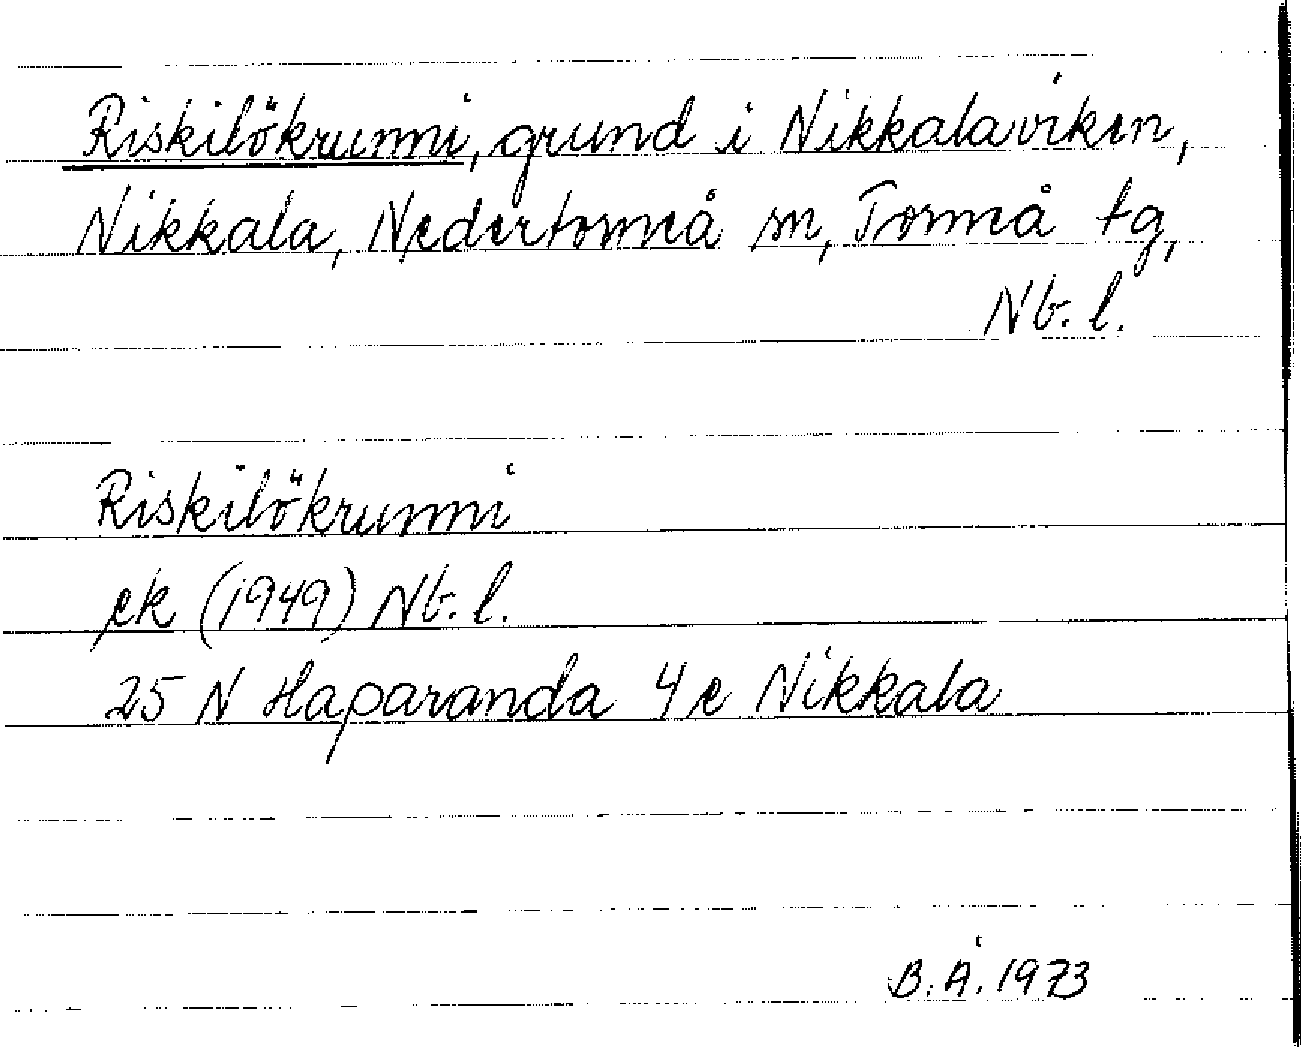 Riskilökrunni, grund i Nikkalaviken,
Nikkala, Nedertorneå sn, Torneå tg,
Nb. l.
Riskilökrunni
ek (1949) Nb. l.
25 N Haparanda 4 e Nikkala
B. Å. 1973